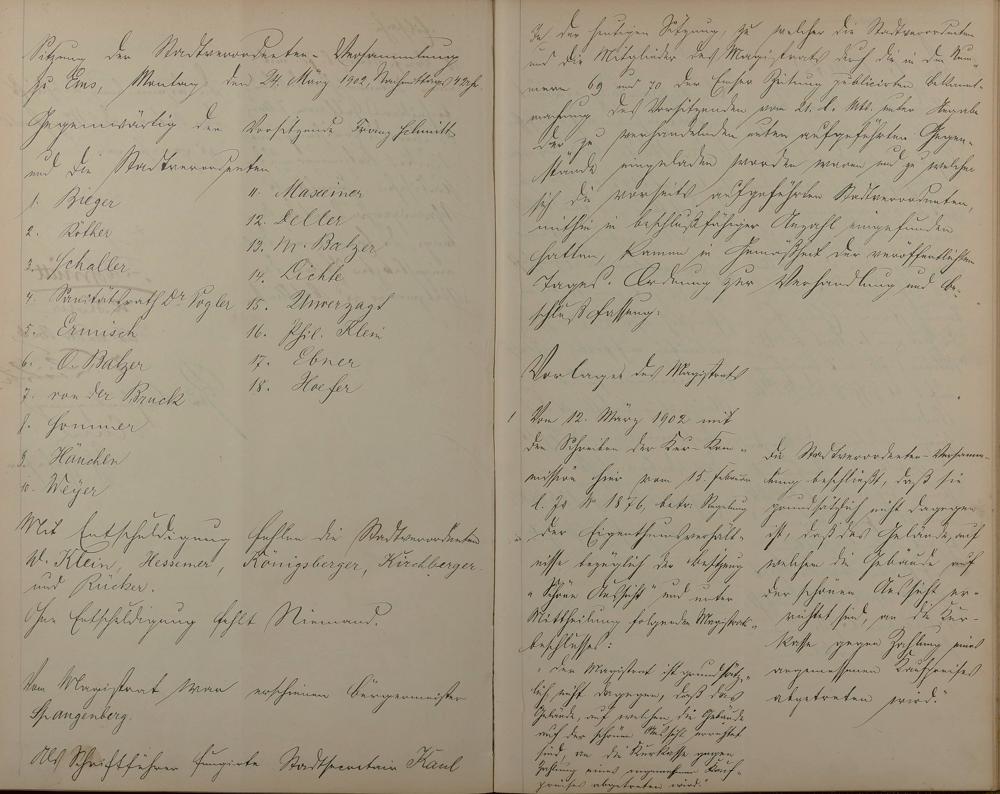 Sitzung der Stadtverordneten-Versammlung
zu Ems, Montag den 24. März 1902, Nachmittags 4 Uhr.
Gegenwärtig der Vorsitzende Franz Schmitt
und die Stadtverordneten
1. Bieger
2. Röther
3. Schaller
4. Sanitätsrath Dr Vogler
5. Ermisch
6. O. Balzer
7. von der Bruck
8. Sommer
9. Hänchen
10. Weyer
11. Maxeiner
12. Deller
13. M. Balzer
14. Lichte
15. Unverzagt
16. Phil. Klein
17. Ebner
18. Hoefer
Mit Entschuldigung fehlen die Stadtverordneten
W. Klein, Hessemer, Königsberger, Kirchberger
und Rücker.
Ohne Entschuldigung fehlt Niemand.
Vom Magistrat war erschienen Bürgermeister
Spangenberg.
Als Schriftführer fungirte Stadtsecretair Kaul
In der heutigen Sitzung, zu welcher die Stadtverordneten
und die Mitglieder des Magistrats durch die in den Num-
mern 69 und 70 der Emser Zeitung publicirten Bekannt-
machung des Vorsitzenden vom 21. l. Mts. unter Angabe
der zu verhandelnden unten aufgeführten Gegen-
stände eingeladen worden waren und zu welcher
sich die vorseits aufgeführten Stadtverordneten,
mithin in beschlußfähiger Anzahl eingefunden
hatten, kamen in Gemäßheit der veröffentlichten
Tages-Ordnung zur Verhandlung und Be-
schlußfassung:
Vorlagen des Magistrats
1 Vom 12. März 1902 mit
dem Schreiben der Kur-Kom-
mission hier vom 15. Februar
l. Js № 1876, betr. Regelung
der Eigenthumsverhält-
nisse bezüglich der Besitzung
"Schöne Aussicht" und unter
Mittheilung folgenden Magistrats-
beschlusses:
"Der Magistrat ist grundsätz-
lich nicht dagegen, daß das
Gelände, auf welchem die Gebäude
auf der schönen Aussicht errichtet
sind, an die Kurkasse gegen
Zahlung eines angemessenen Kauf-
preises abgetreten wird."
Die Stadtverordneten-Versamm-
lung beschließt, daß sie
grundsätzlich nicht dagegen
ist, daß das Gelände, auf
welchem die Gebäude auf
der schönen Aussicht er-
richtet sind, an die Kur-
kasse gegen Zahlung eines
angemessenen Kaufpreises
abgetreten wird."